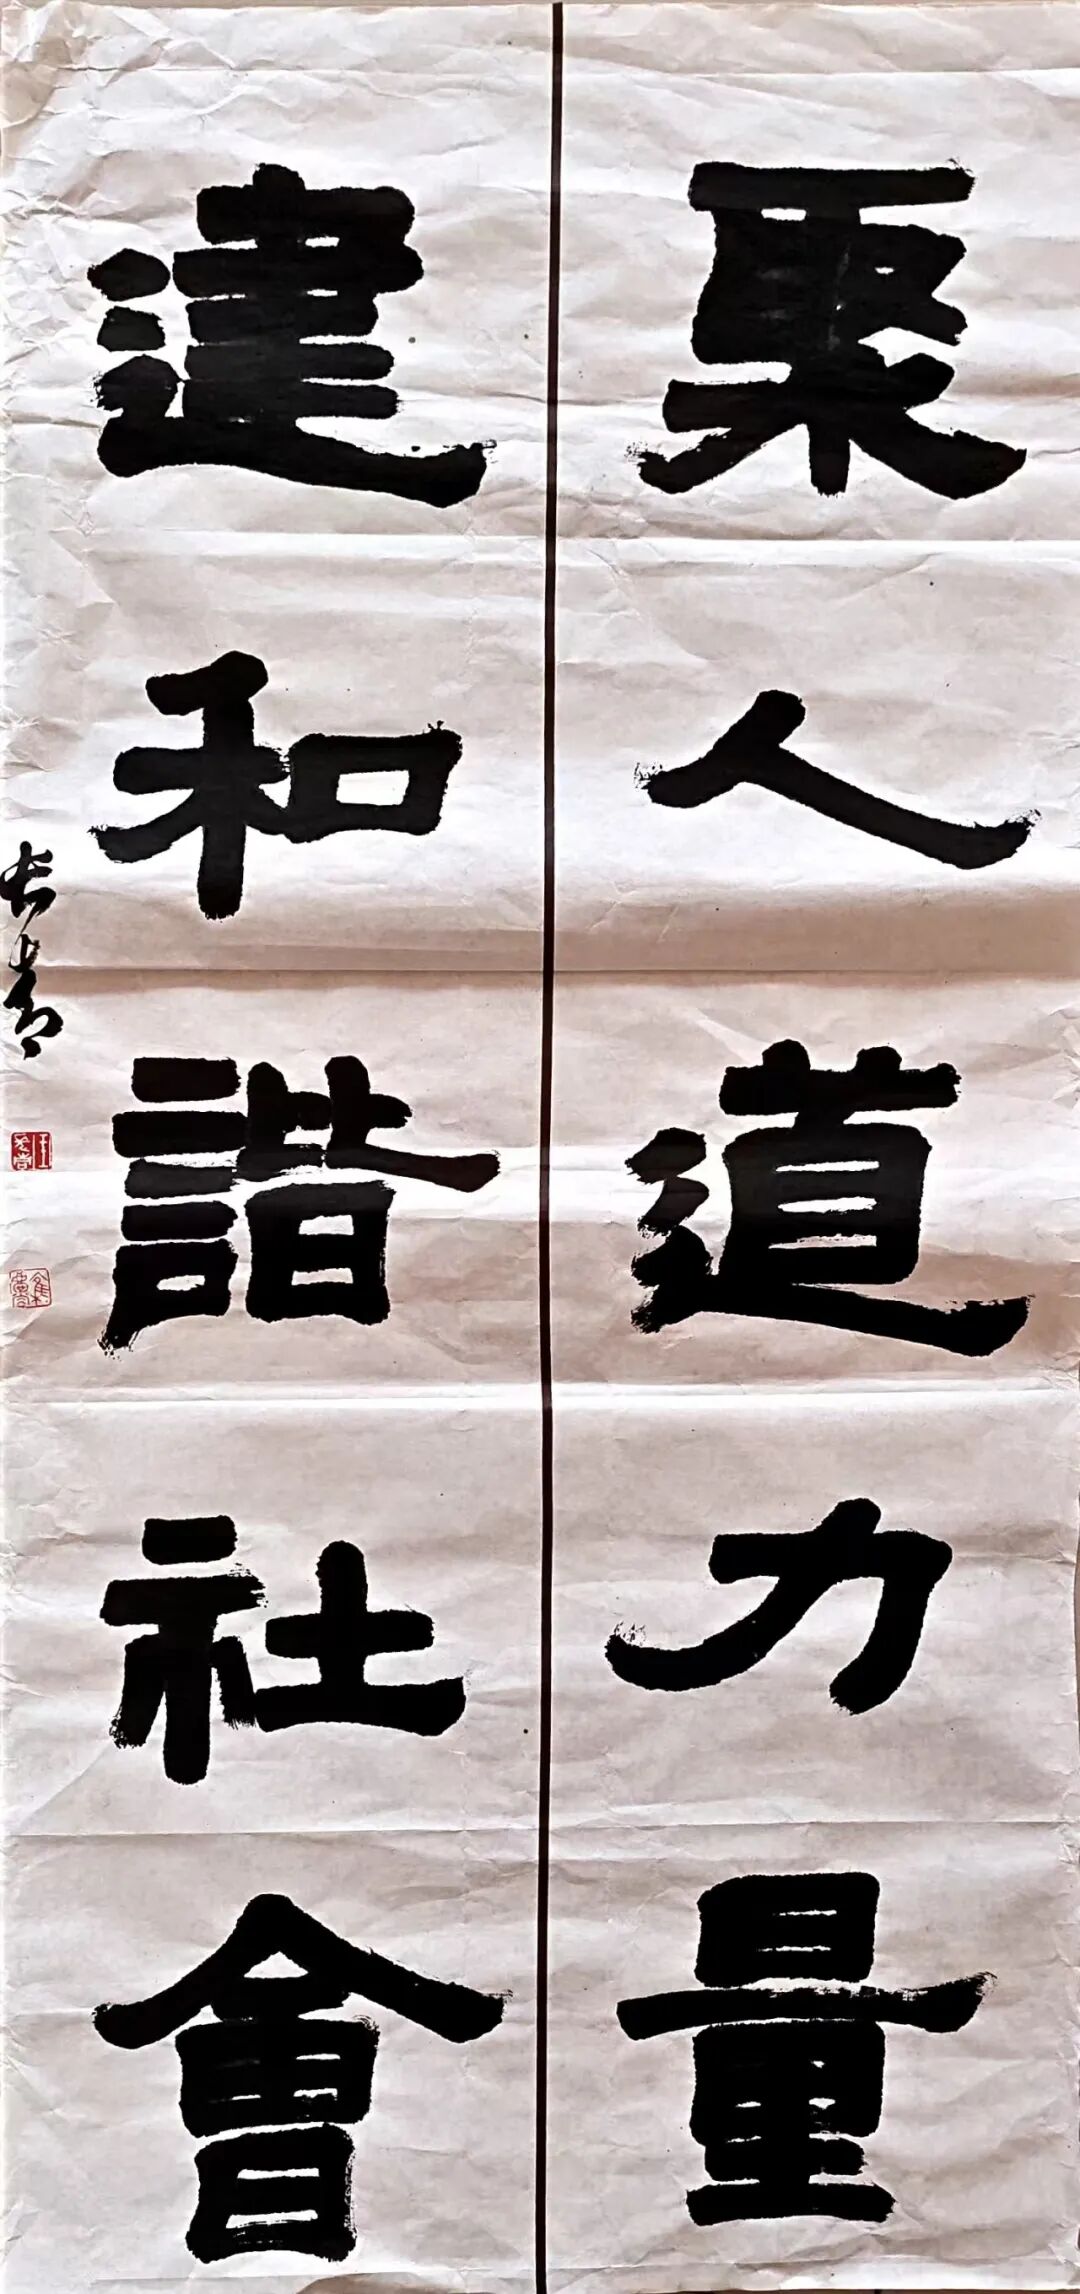 聚人道力量
建和諧社會
长青